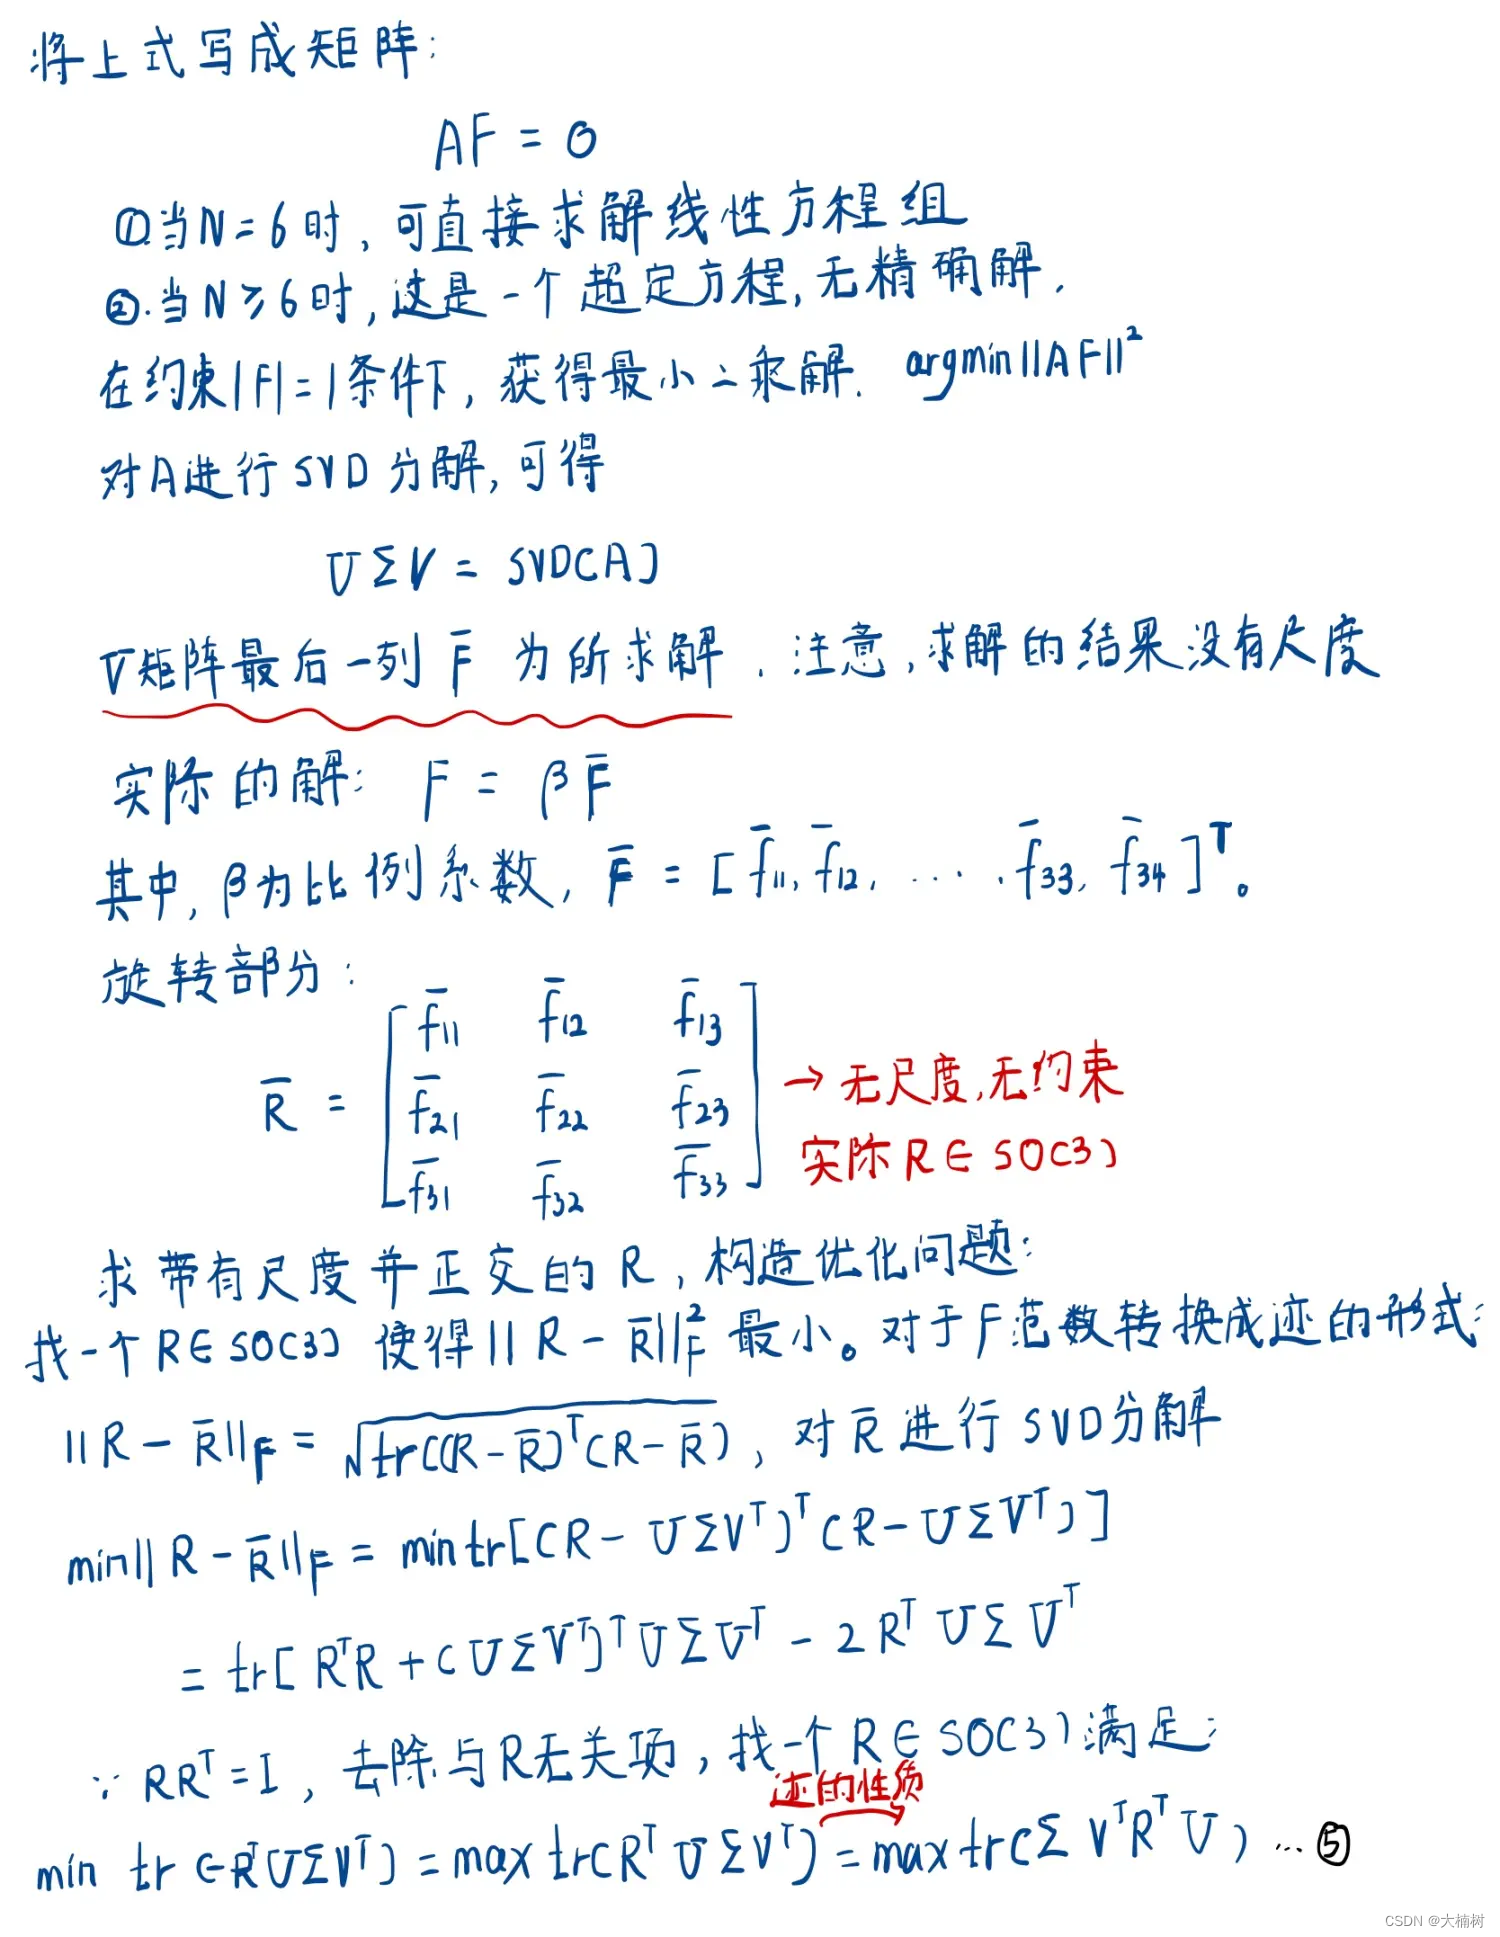 将上式写成矩阵:
AF = 0
①.当N=6时, 可直接求解线性方程组
②.当N≥6时, 这是一个超定方程, 无精确解.
在约束|F|=1条件下, 获得最小二乘解. argmin||AF||²
对A进行SVD分解, 可得
UΣV = SVD(A)
V矩阵最后一列 F̄ 为所求解. 注意, 求解的结果没有尺度
实际的解: F = βF̄
其中, β为比例系数, F̄ = [f̄₁₁, f̄₁₂, ..... f̄₃₃, f̄₃₄]ᵀ。
旋转部分:
R̄ = [ f̄₁₁ f̄₁₂ f̄₁₃
f̄₂₁ f̄₂₂ f̄₂₃
f̄₃₁ f̄₃₂ f̄₃₃ ]
→ 无尺度, 无约束
实际 R∈SO(3)
求带有尺度并正交的R, 构造优化问题:
找一个R∈SO(3) 使得||R-R̄||²_F 最小。对于F范数转换成迹的形式:
||R-R̄||_F = √tr((R-R̄)ᵀ(R-R̄)), 对R̄进行SVD分解
min||R-R̄||_F = mintr[(R-UΣVᵀ)ᵀ(R-UΣVᵀ)]
= tr[RᵀR+(UΣVᵀ)ᵀUΣVᵀ-2RᵀUΣVᵀ
∵ RRᵀ=I, 去除与R无关项, 找一个R∈SO(3)满足:
迹的性质
min tr(-RᵀUΣVᵀ) = max tr(RᵀUΣVᵀ) = max tr(ΣVᵀRᵀU) ...⑤
CSDN @大楠树